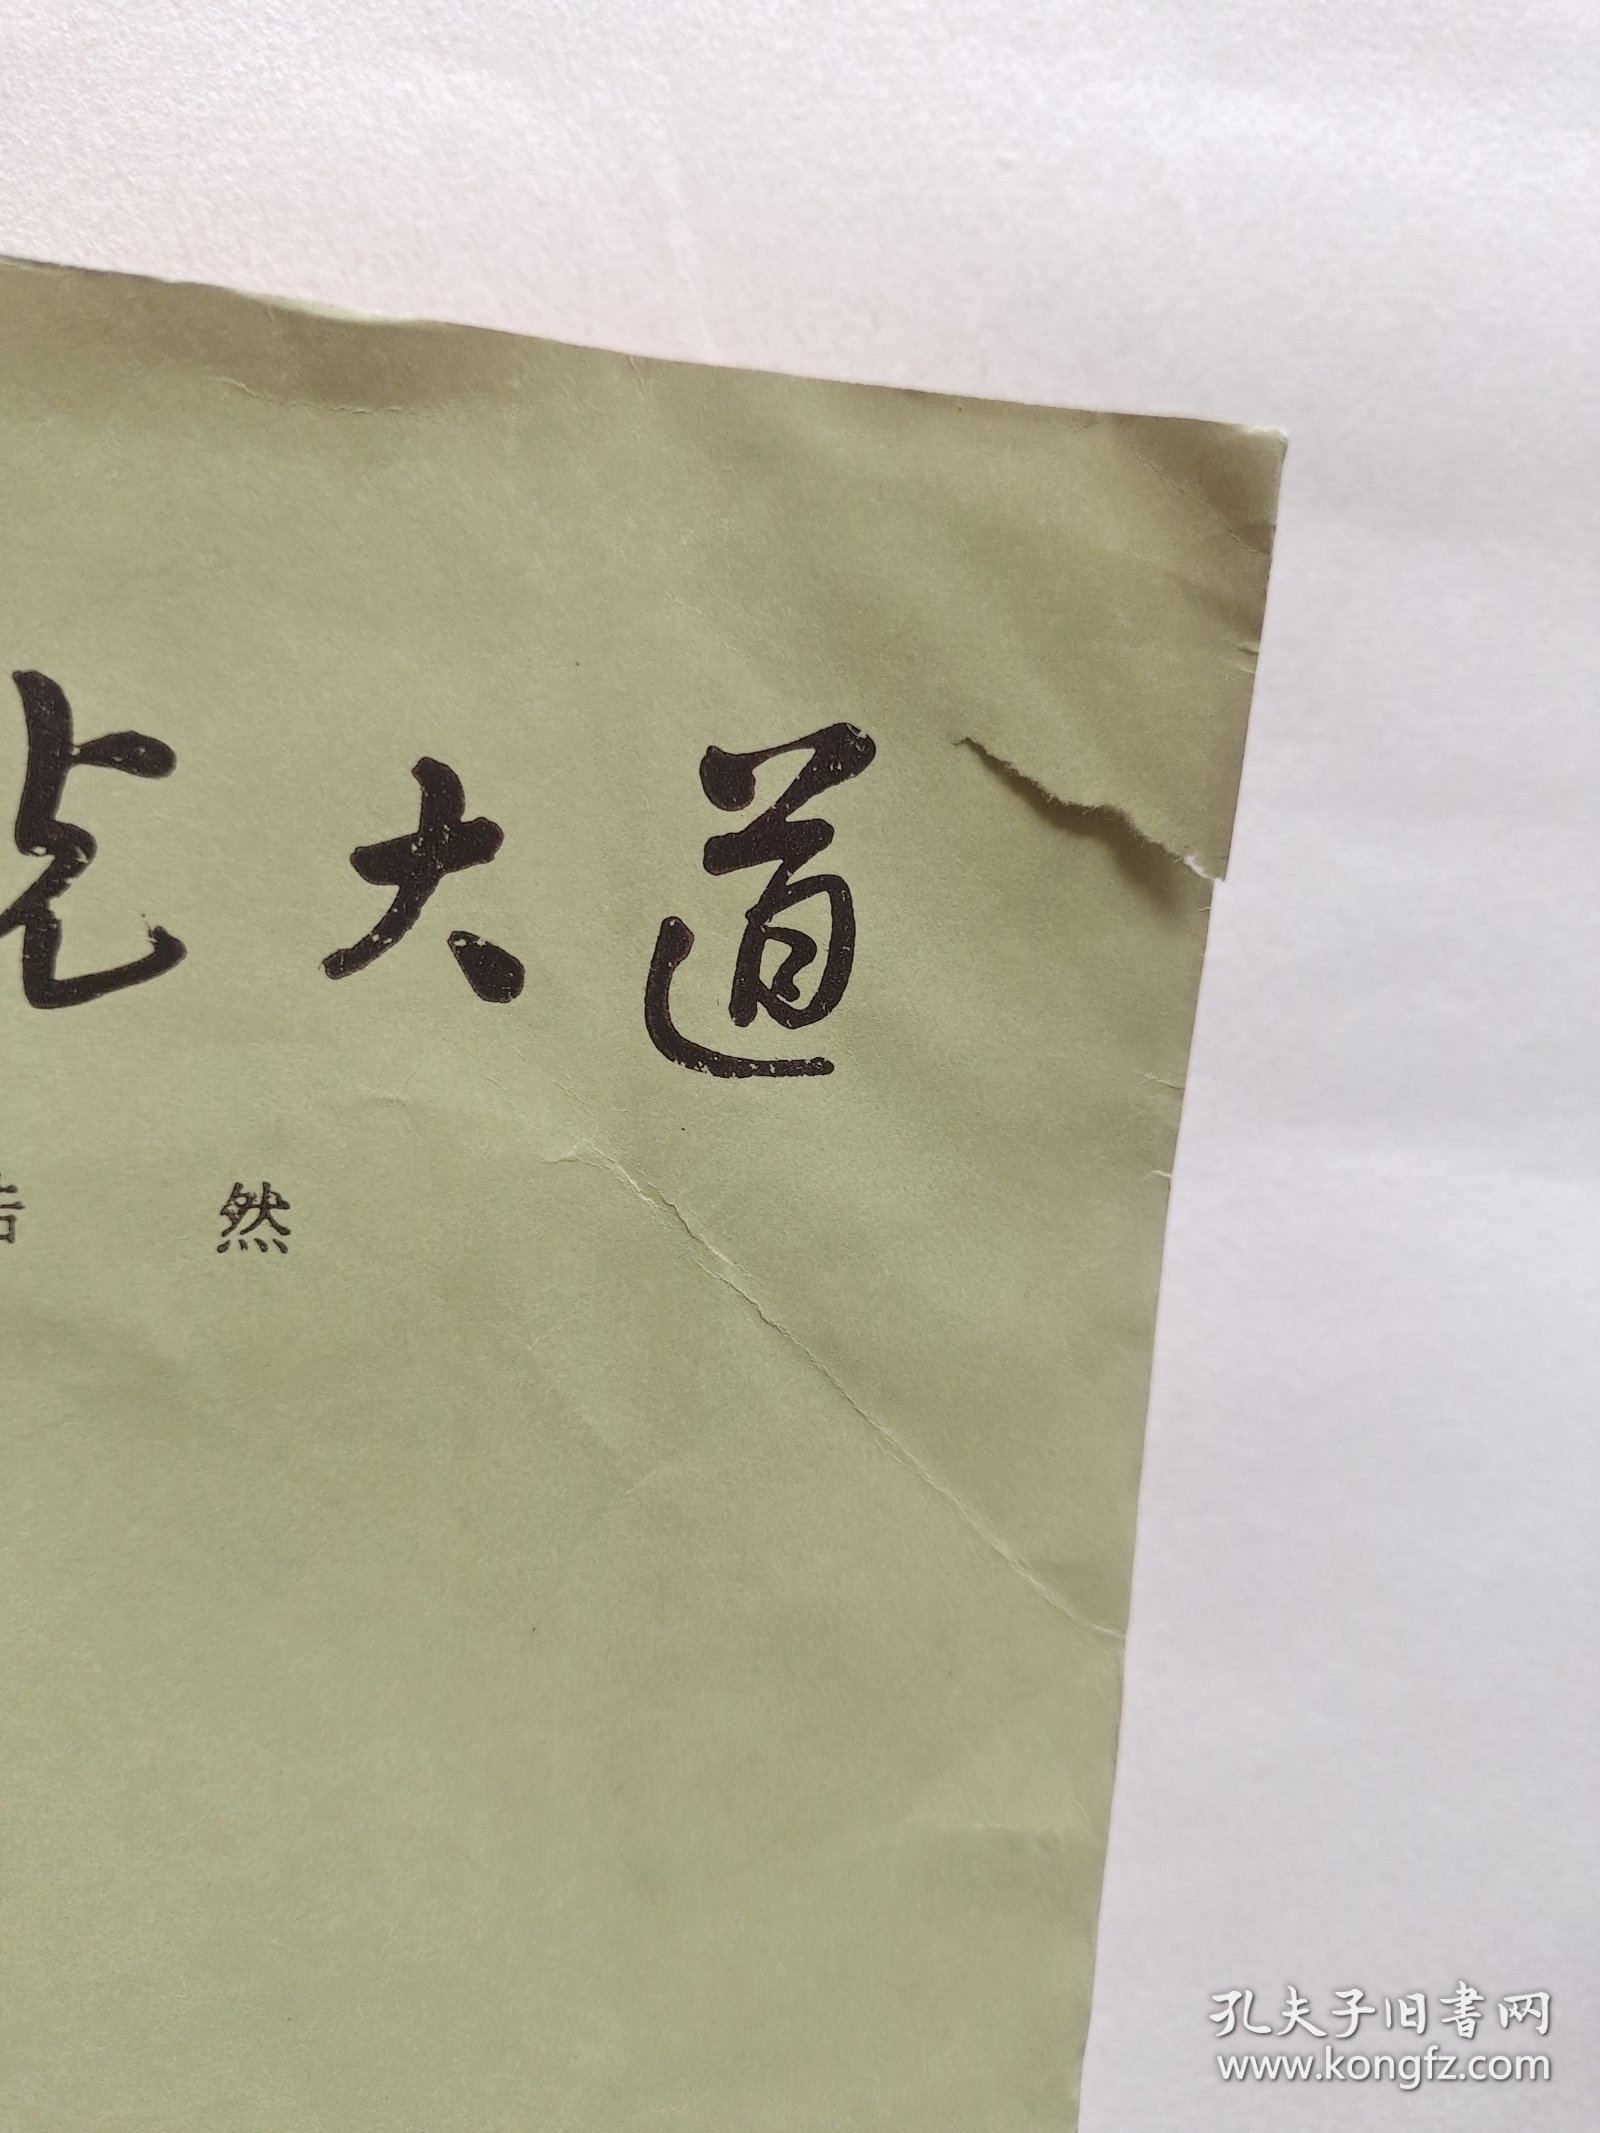 光大道
浩然
孔夫子旧书网
www.kongfz.com